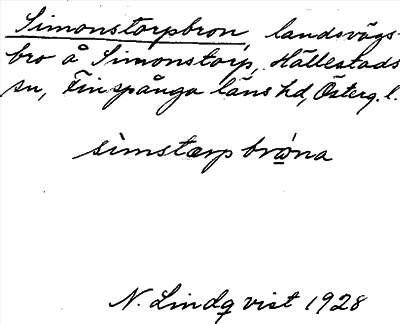 Simonstorpbron, landsvägs-
bro å Simonstorp, Hällestads
sn, Finspånga läns hd, Österg. l.
simstorp
N. Lindqvist 1928